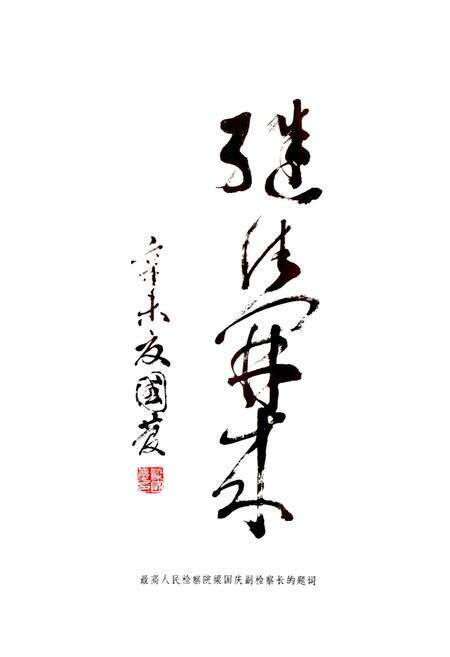 继往开来
辛未夏国庆
最高人民检察院梁国庆副检察长的题词